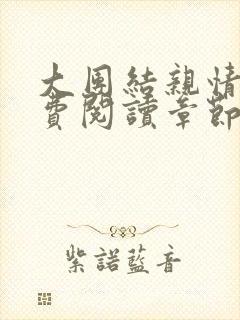 大團結親情
費閱讀章節
紫諾藍音